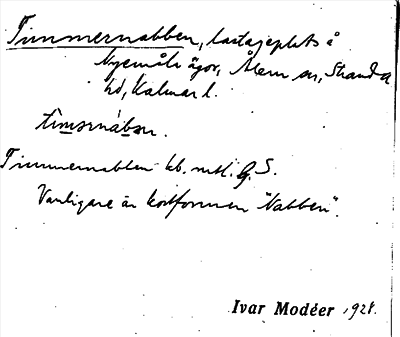 Timmernabben, lastageplats å
Nyemåla ägor, Ålem sn, Stranda
hd, Kalmar l.
timərnabən.
Timmernabben kb. mtl. G. S.
Vanligare är kortformen "Nabben".
Ivar Modéer 1928.